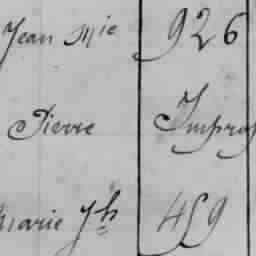 Jean Mie 926
Pierre Impro
Marie Jh 459